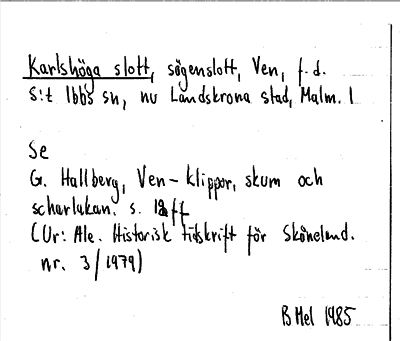 Karlshöga slott, sögenslott, Ven, f.d.
S:t Ibbs sn, nu Landskrona stad, Malm. l
Se
G. Hallberg, Ven - klippor, skum och
scharlakan. s. ff
(Ur: Ale. Historisk tidskrift för Skåneland.
nr. 3/1979)
B Mel 1985